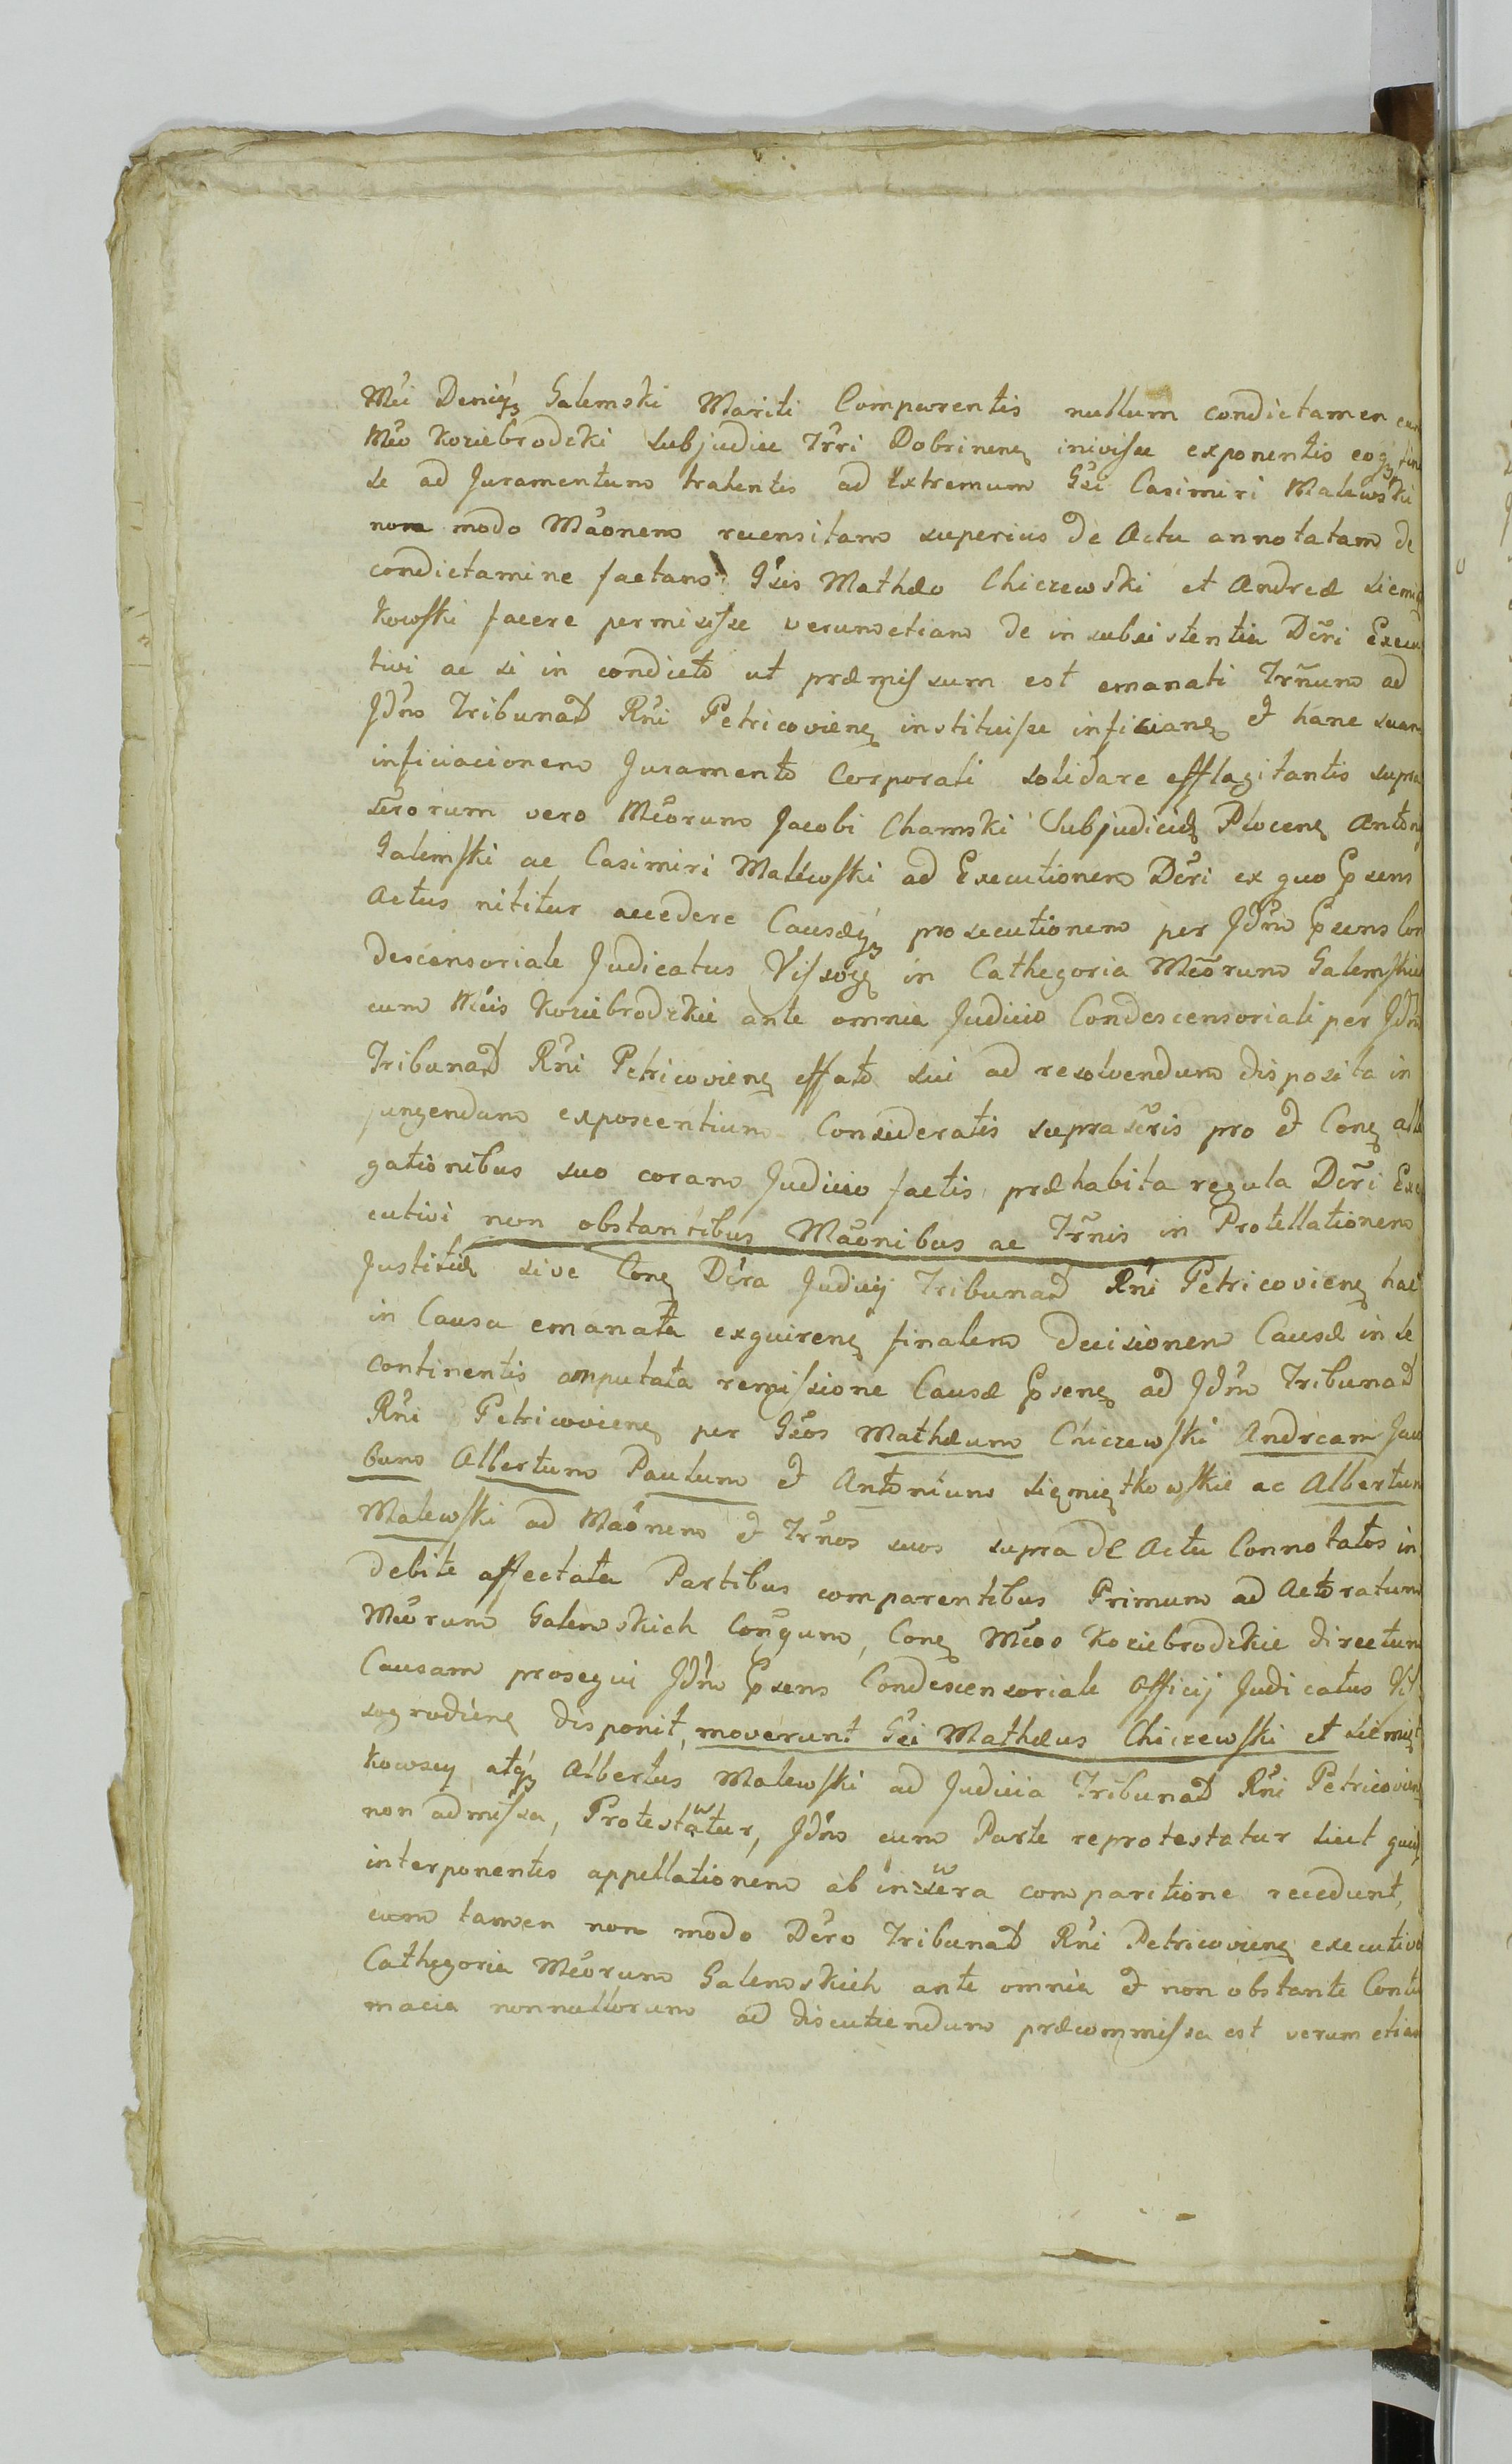 Mei Deniq3 Galemski Mariti Comparentis nullum condictamen
Meo Koziebrodzki Subjudice Trri Dobrinenę inivisse exponentis eoq3
se ad Juramentum trahentis ad Extremum Gsi Casimiri Malewski
non modo Maonem recensitam superius de Actu annotatam de
condictamine factam Gsis Mathæo Chiczewski et Andreæ Siemią
kowski facere permisisse verumetiam de in subsistentia Dcri Execu
tivi ac si in condicto ut præmissum est emanati Trnum ad
Jdm Tribunad Rni Petricovienę instituisse inficianę & hanc suam
inficiacionem Juramento Corporali solidare efflagitantis supra
scrorum vero Meorum Jacobi Chamski Subjudicię Plocenę Anton
Galemski ac Casimiri Malewski ad Executionem Dcri ex quo Psens
Actus nititur accedere Causæq3 prosecutionem per Jdm Psens Con
descensoriale Judicatus Vissogę in Cathegoria Meorum Galemskich
cum Meis Koziebrodzkie ante omnia Judicio Condescensoriali per Jdm
Tribunad Rni Petricovienę effato sui ad resolvendum disposita in
jungendum exposcentium Consideratis suprascris pro & Conę alle
gationibus suo coram Judicio factis præhabita regula Dcri Exe
cutivi non obstantibus Maonibus ac Trnis in Protellationem
Justitiæ sive Conę Dcra Judicij Tribunad Rni Petricovienę hac
in Causa emanata exquirenę finalem decisionem Causæ in se
continentis amputata remissione Causæ Psenę ad Jdm Tribunad
Rni Petricovienę per Gsos Mathæum Chiczewski Andream Jaco
bum Albertum Paulum & Antonium Siemiętkowskie ac Albertum
Malewski ad Maonem & Trnos suos supra de Actu Connotatos in
debite affectata Partibus comparentibus Primum ad Actoratum
Meorum Galemskich Congum, Conę Meos Koziebrodzkie directum
Causam prosequi Jdm Psens Condescensoriale Officij Judicatus Vis
sogrodienę disponit, moverunt Gsi Mathæus Chiczewski et Siemięt
kowscy atq3 Albertus Malewski ad Judicia Tribunad Rni Petricovienę
non admissa, Protestantur, Jdm cum Parte reprotestatur sicut
interponentes appellationem ab inscra comparitione recedunt,
cum tamen non modo Dcro Tribunad Rni Petricovienę executivo
Cathegoria Meorum Galemskich ante omnia & non obstante Contu
macia nonnullorum ad discutiendum præcommissa est verum etiam